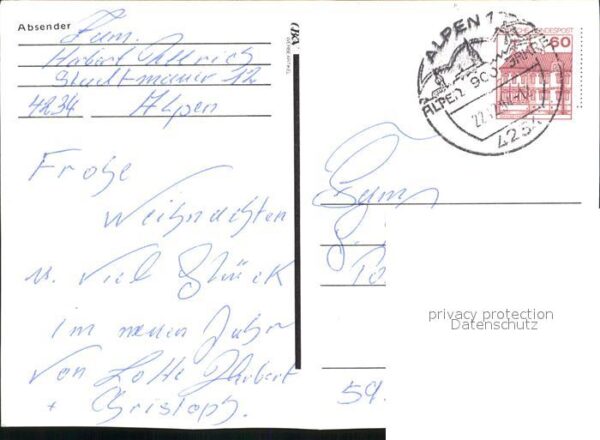 Absender
Fam.
Herbert Ullrich
Stadtmauer 12
4234 Alpen
Frohe
Weihnachten
u. viel Glück
im neuen Jahr
von Lotte Herbert
+ Christoph.
ALPEN 1
ALPEN 900 JAHRE
4234
BUNDESPOST
60
Fam.
59
privacy protection
Datenschutz